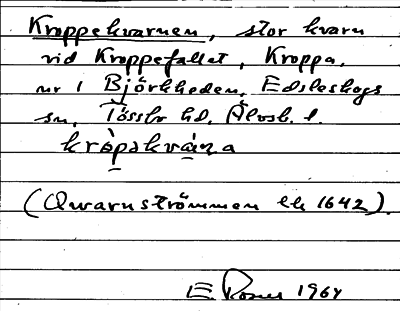 Kroppekvarnen, stor kvarn
vid Kroppefallet, Kroppa,
nr 1 Björkheden, Edsleskogs
sn, Tössbo hd, Älvsb. l.
kròpekvàṇa
(Qwarnströmmen lk 1642).
E. 1964